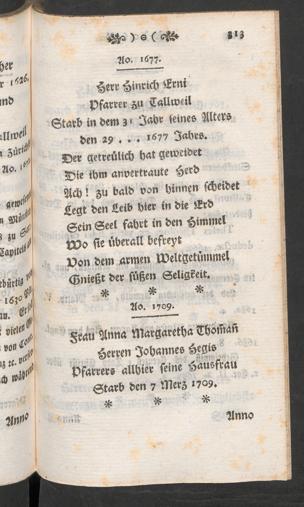 313
Ao. 1677.
Herr Hinrich Erni
Pfarrer zu Tallweil
Starb in dem 31 Jahr seines Alters
den 29 . . . 1677 Jahrs.
Der getreülich hat geweidet
Die ihm anvertraute Herd
Ach! zu bald von hinnen scheidet
Legt den Leib hier in die Erd
Sein Seel fahrt in den Himmel
Wo sie überall befreyt
Von dem armen Weltgetümmel
Gnießt der süßen Seligkeit.
* * *
Ao. 1709.
Frau Anna Margaretha Thoman̄
Herren Johannes Hegis
Pfarrers allhier seine Hausfrau
Starb den 7 Merz 1709.
* * *
Anno
Anno